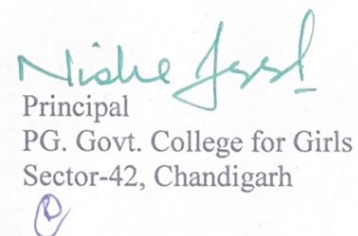 Principal
PG. Govt. College for Girls
Sector-42, Chandigarh